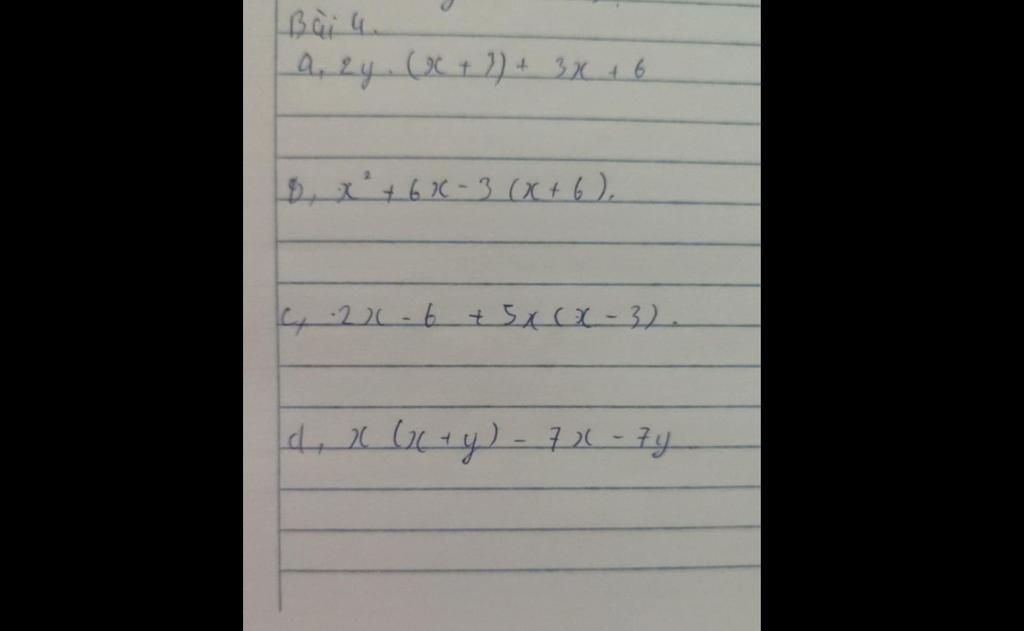 Bài 4.
a, 2y. (x + 2) + 3x + 6
b, x² + 6x - 3 (x + 6).
c, 2x - 6 + 5x (x - 3).
d, x (x + y) - 7x - 7y